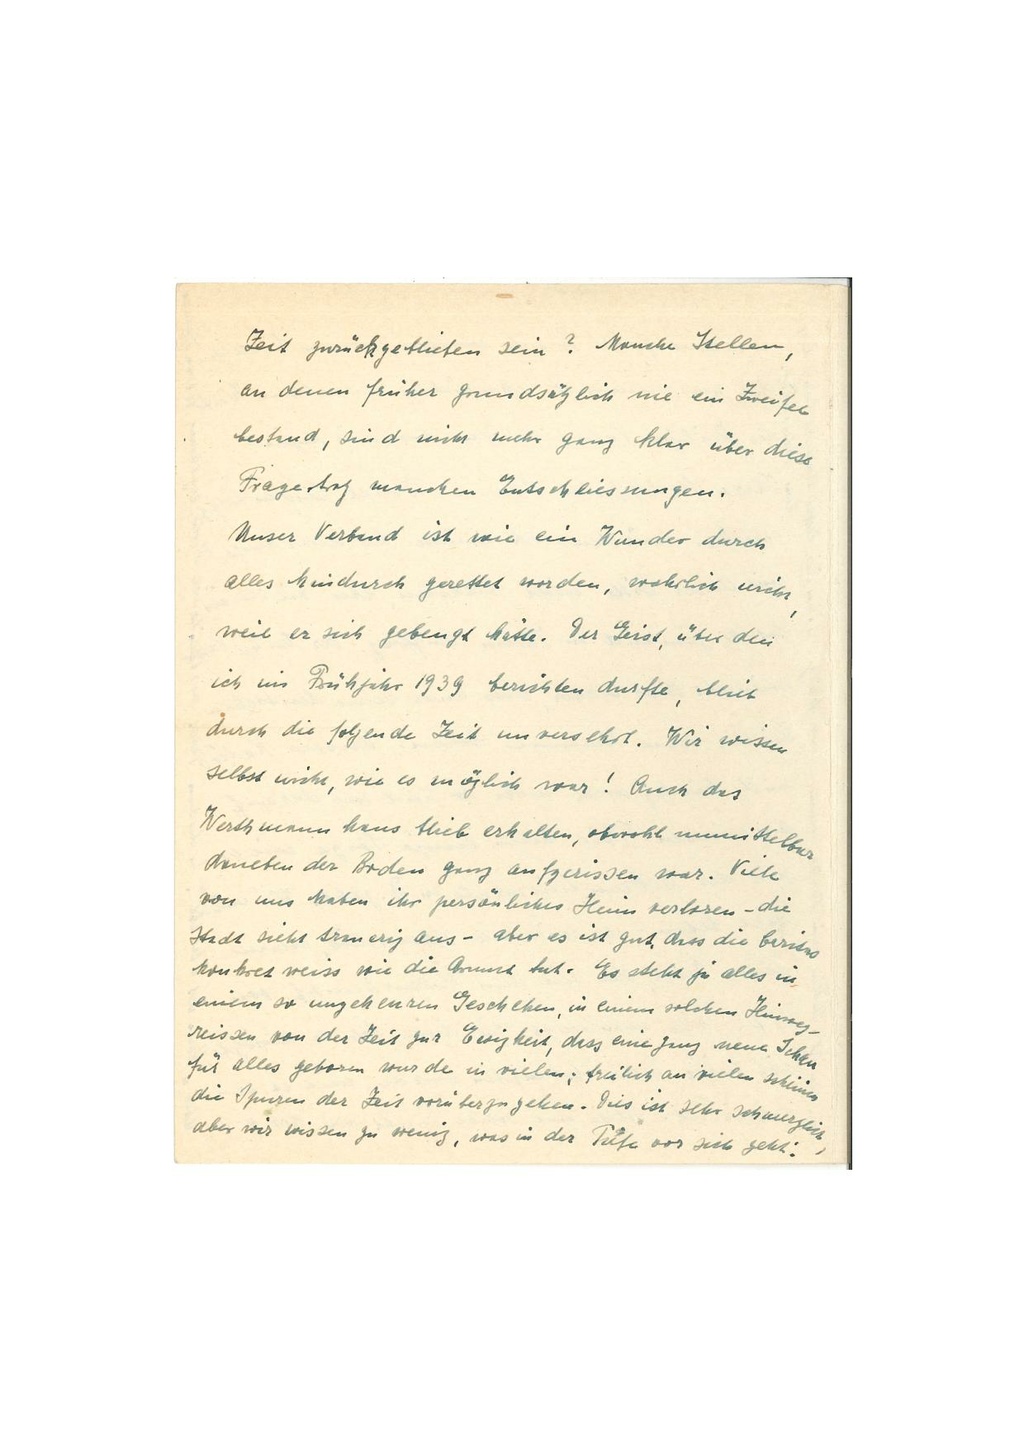 Zeit zurückgeblieben sein? Manche Stellen,
an denen früher grundsätzlich nie ein Zweifel
bestand, sind nicht mehr ganz klar über diese
Frage trotz manchen Entschliessungen.
Unser Verband ist wie ein Wunder durch
alles hindurch gerettet worden, wahrlich nicht,
weil er sich gebeugt hätte. Der Geist, über den
ich im Frühjahr 1939 berichten durfte, blieb
durch die folgende Zeit unversehrt. Wir wissen
selbst nicht, wie es möglich war! Auch das
Werthmannhaus blieb erhalten, obwohl unmittelbar
daneben der Boden ganz aufgerissen war. Viele
von uns haben ihr persönliches Heim verloren – die
Stadt sieht traurig aus – aber es ist gut, dass die Caritas
konkret weiss wie die Armut tut. Es steht ja alles in
einem so ungeheuren Geschehen, in einem solchen Hinweg-
reissen von der Zeit zur Ewigkeit, dass eine ganz neue Schau
für alles geboren wurde in vielen; freilich an vielen scheinen
die Spuren der Zeit vorüberzugehen. Dies ist sehr schmerzlich,
aber wir wissen zu wenig, was in der Tiefe vor sich geht.